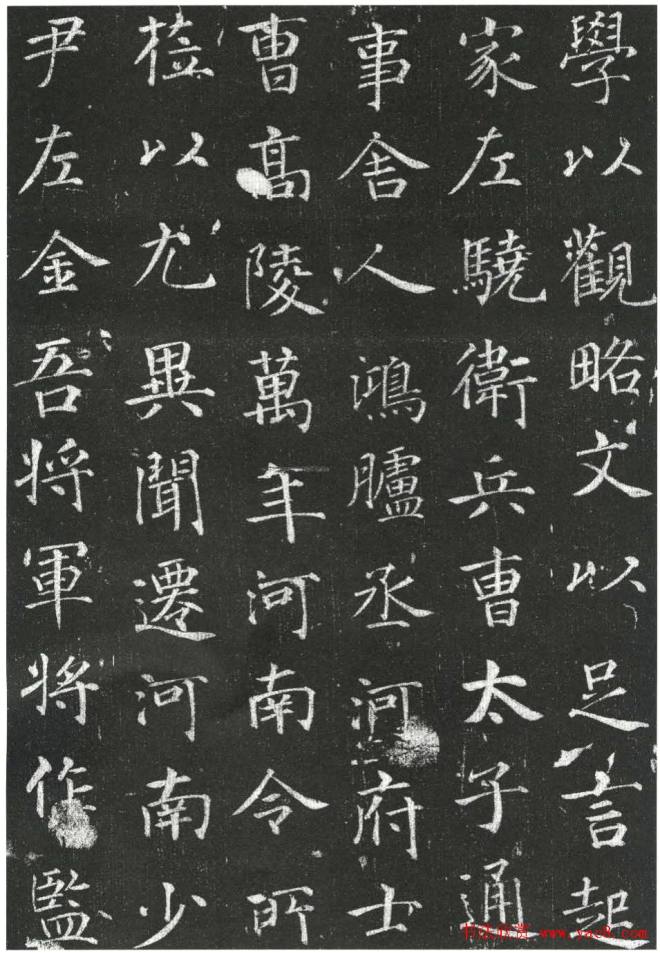 學以觀略文以足言起
家左驍衛兵曹太子通
事舍人鴻臚丞河府士
曹高陵萬年河南令所
莅以尤異聞遷河南少
尹左金吾將軍將作監
www.yac8.com